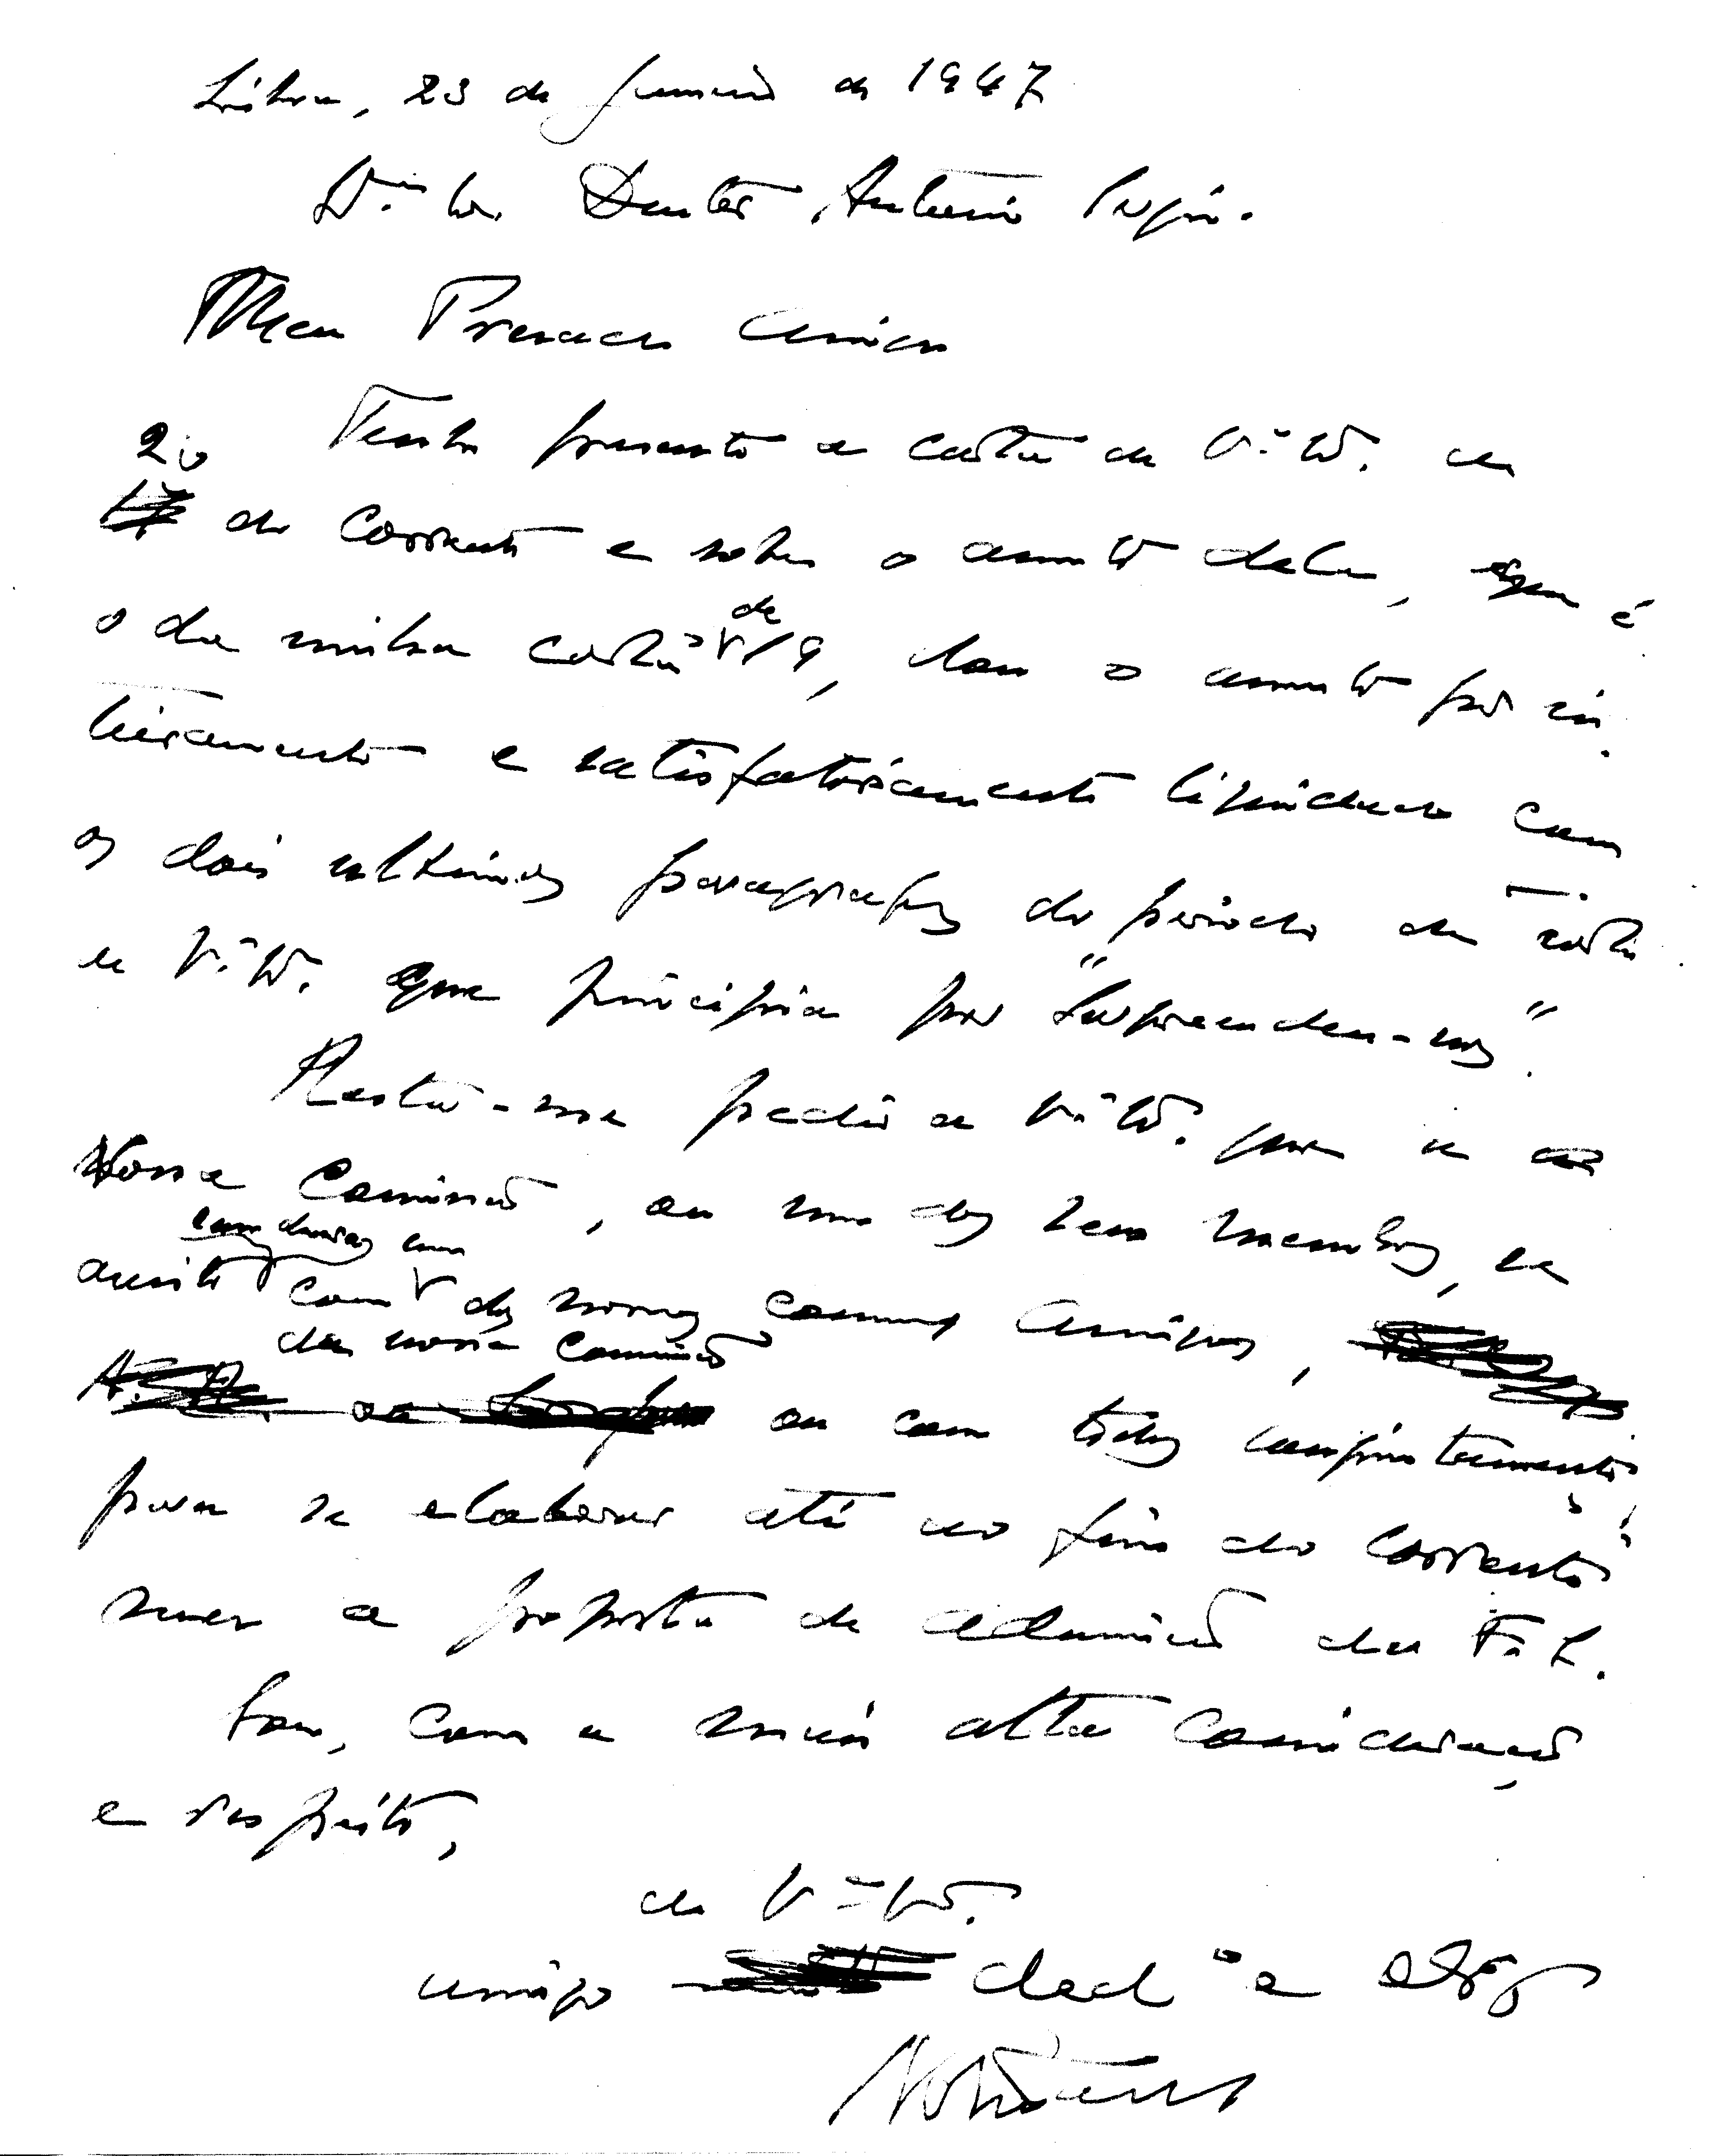 Lisboa, 23 de Janeiro de 1947
Ex.mo Sr. Doutor António Sérgio.
Meu Prezado Amigo
Tenho presente a carta de V.ª Ex.ª de
20 do corrente e sobre o assunto dela, que é
o da minha carta de 19, dou o assunto por in-
teiramente e satisfatòriamente liquidado com
os dois ultimos paragrafos do periodo da carta
de V.ª Ex.ª que principia por "Surpreendeu-nos".
Resta-me pedir a V.ª Ex.ª que a
Vossa Comissão, ou um dos seus membros, se
aviste com dos nossos comuns Amigos,
da nossa Comissão
ou com todos conjuntamente,
para se elaborar até ao fim do corrente
mez a proposta de adm
Sou, com a mais alta consideração
e respeito,
de V.ª Ex.ª
amigo ded.º e obg.